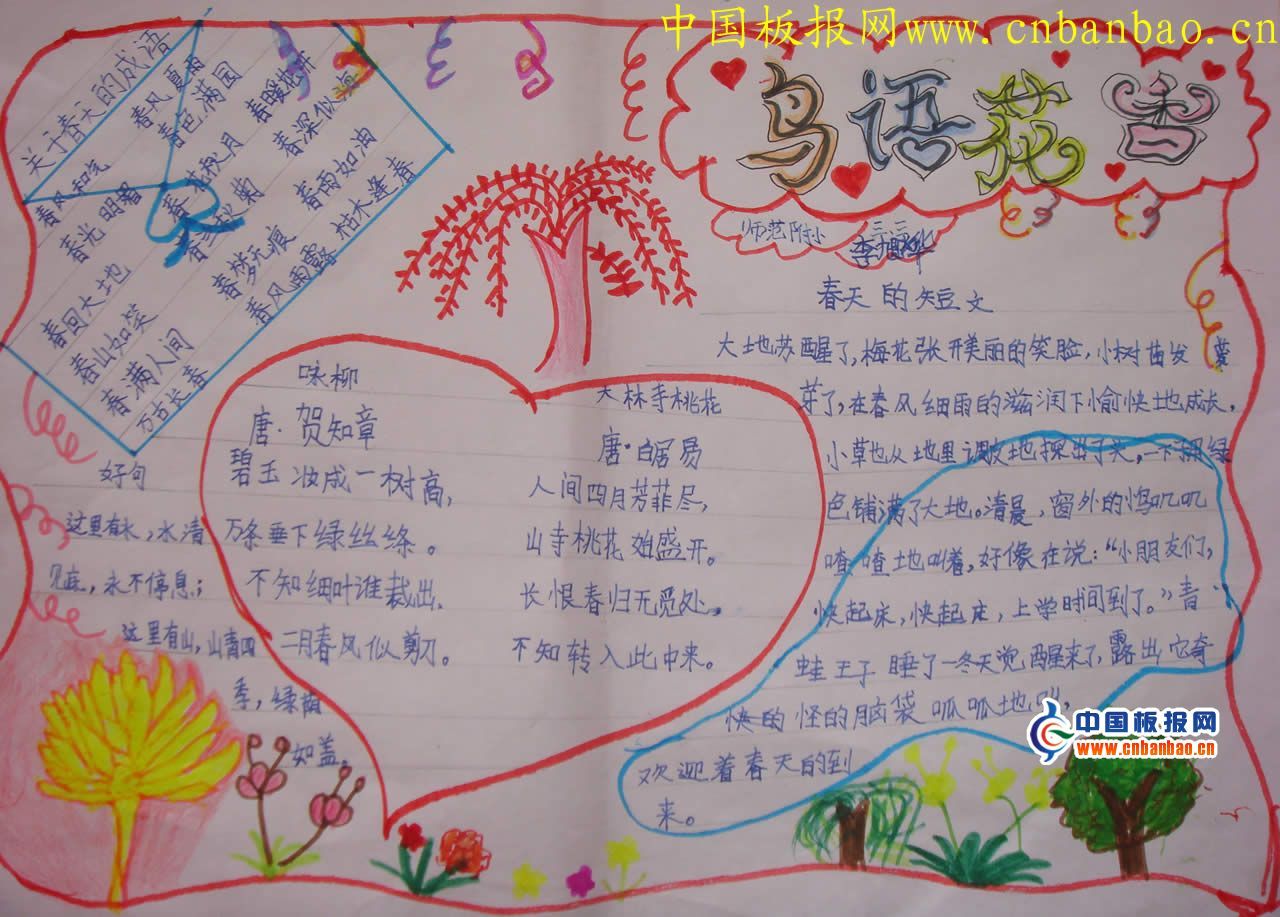 中国板报网www.cnbanbao.cn
鸟语花香
师范附小
关于春天的成语
春风和气
春风夏雨
春光明媚
春色满园
春暖花开
春花秋月
春深似海
春回大地
春兰秋菊
春雨如油
春山如笑
春梦无痕
枯木逢春
春满人间
春风雨露
万古长春
咏柳
唐·贺知章
碧玉妆成一树高，
万条垂下绿丝绦。
不知细叶谁裁出，
二月春风似剪刀。
大林寺桃花
唐·白居易
人间四月芳菲尽，
山寺桃花始盛开。
长恨春归无觅处，
不知转入此中来。
好句
这里有水，水清
见底，永不停息；
这里有山，山青四
季，绿荫
如盖。
春天的短文
大地苏醒了，梅花张开美丽的笑脸，小树苗发
芽了，在春风细雨的滋润下愉快地成长，
小草也从地里调皮地探出了头，一下子用绿
色铺满了大地。清晨，窗外的鸟叽叽
喳喳地叫着，好像在说：“小朋友们，
快起床，快起床，上学时间到了。”青
蛙王子睡了一冬天觉醒来了，露出它奇
怪的脑袋呱呱地叫，
欢迎着春天的到
来。
中国板报网
www.cnbanbao.cn